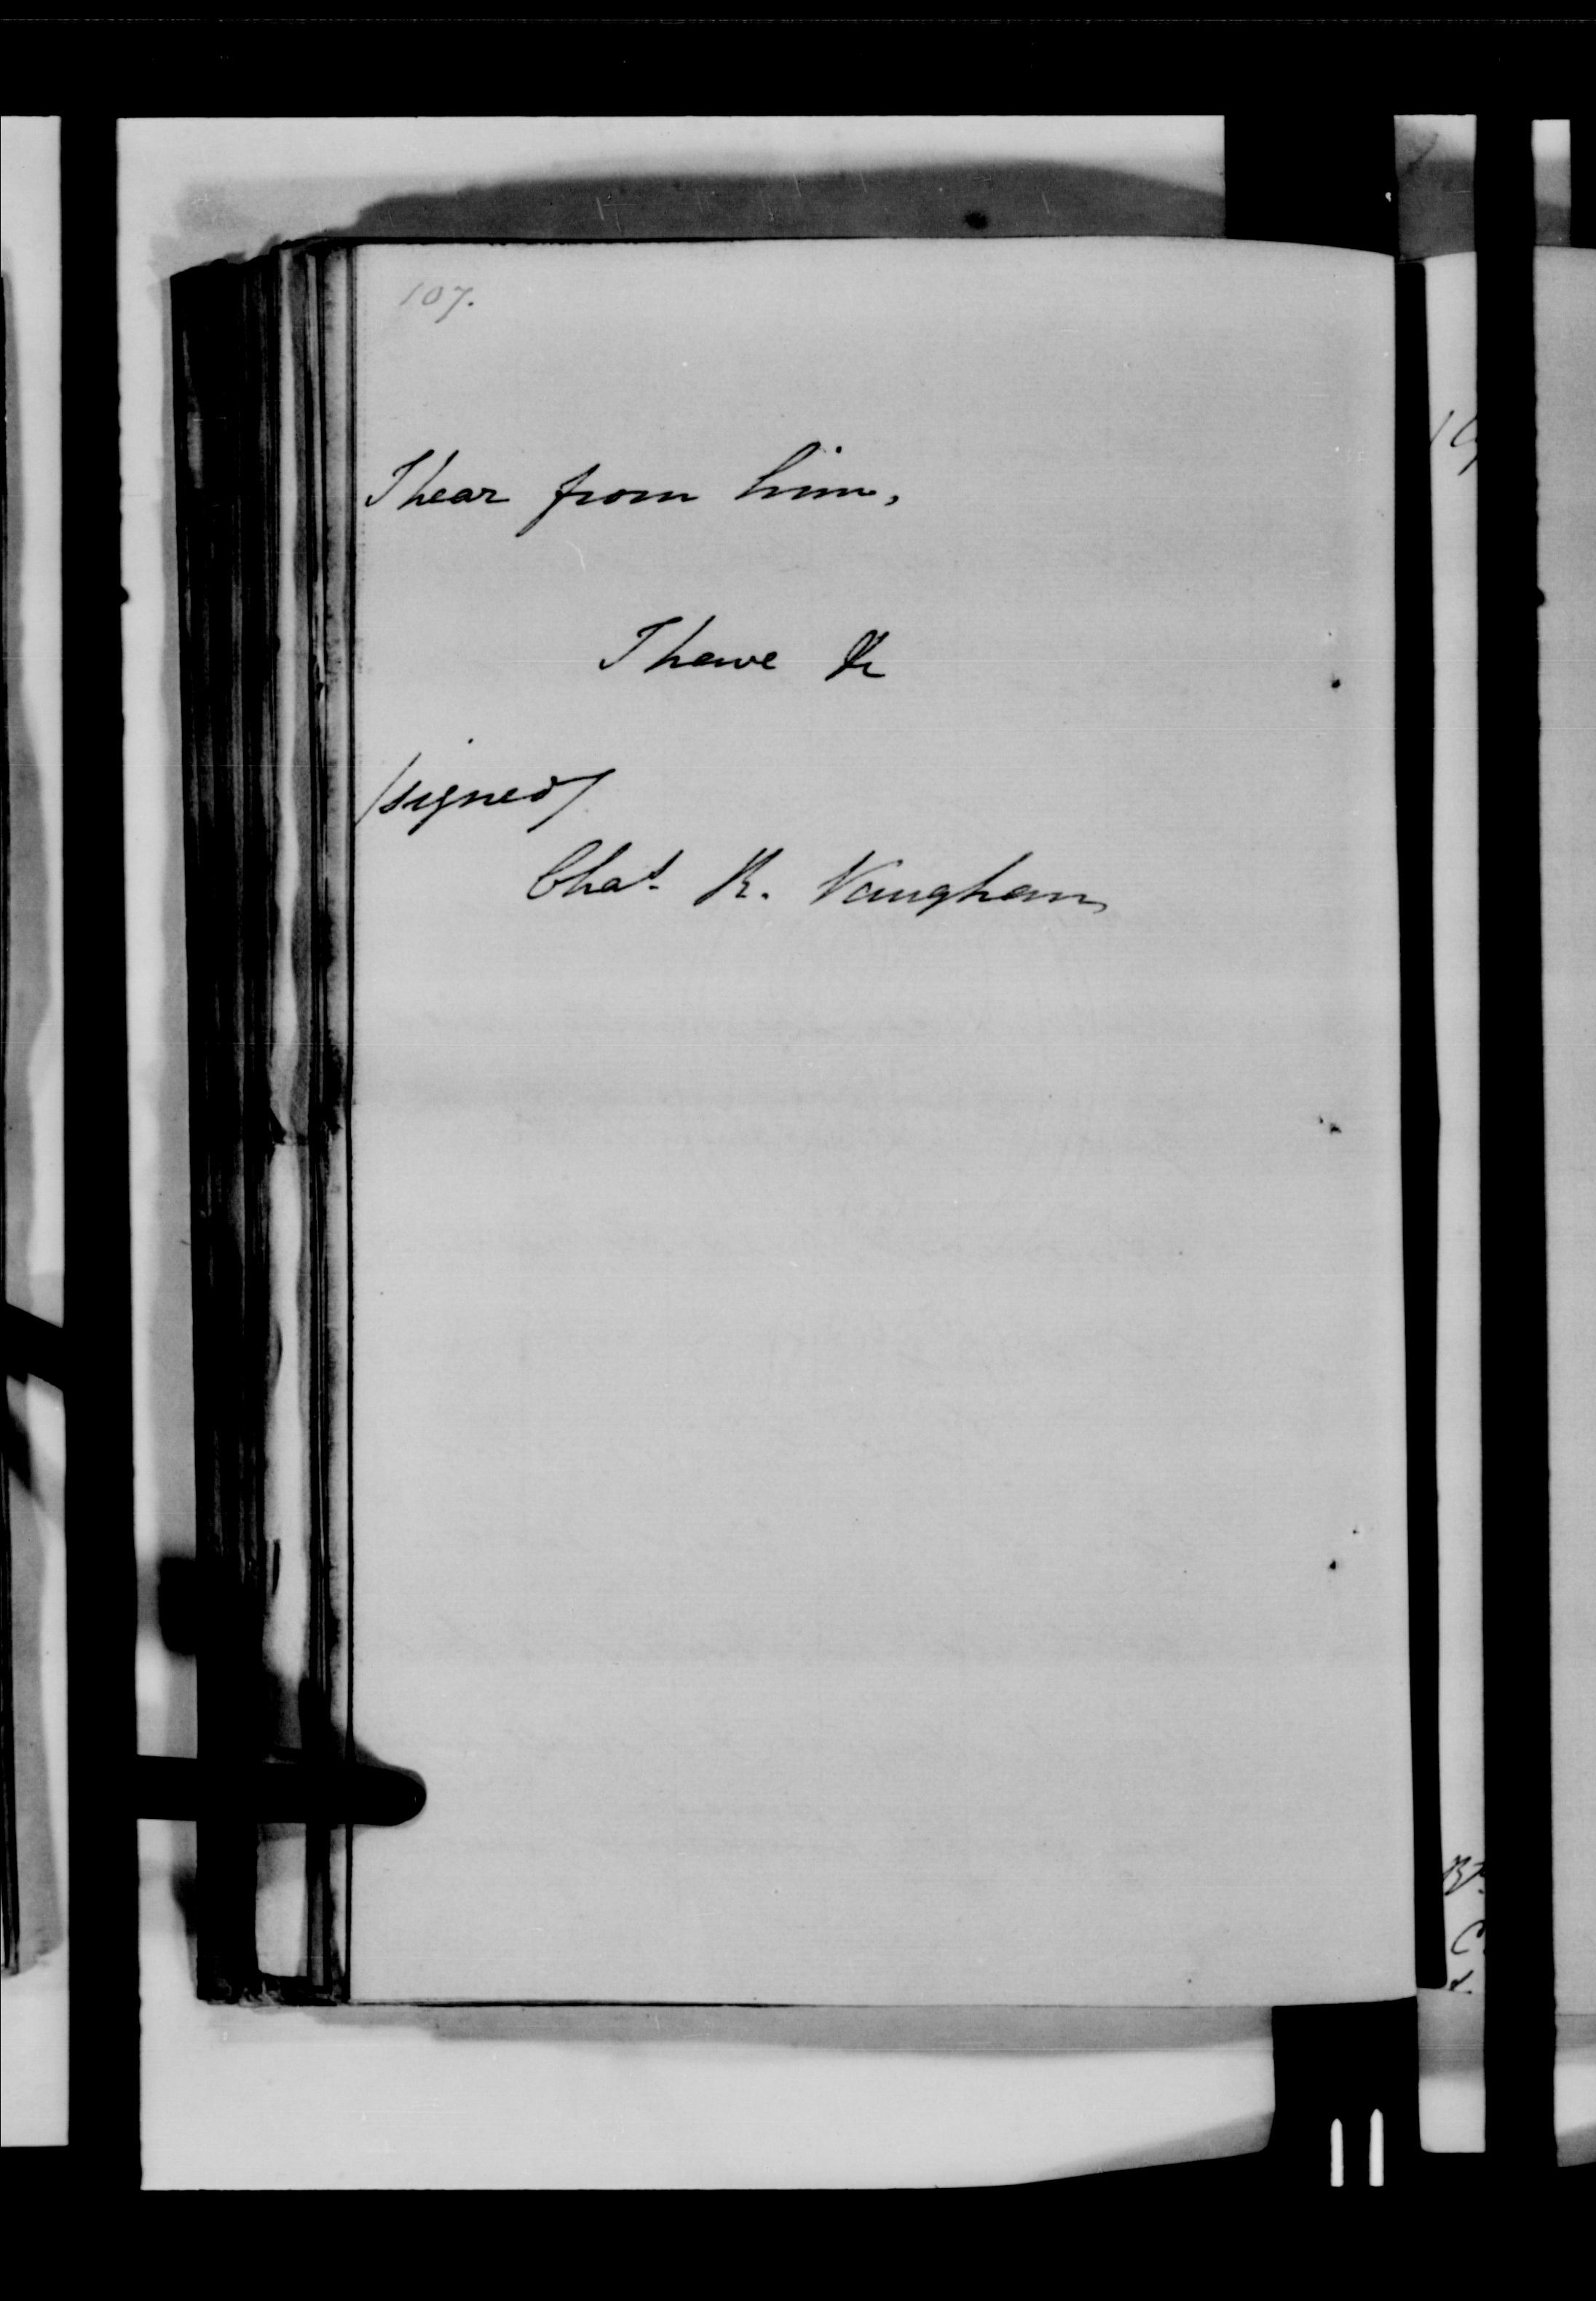 107.
I hear from him,
I have &c
/signed/
Chas. R. Vaughan